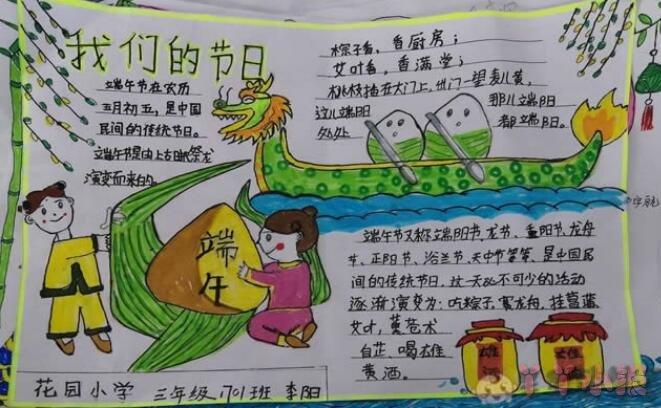 我们的节日
端午节在农历
五月初五，是中国
民间的传统节日。
端午节是由上古时祭龙
演变而来的
粽子香，香厨房；
艾叶香，香满堂；
桃枝插在大门上，出门一望麦儿黄，
这儿端阳
那儿端阳
处处
都端阳。
端午
端午节又称端阳节、龙节、重阳节、龙舟
节、正阳节、浴兰节、天中节等等，是中国民
间的传统节日，这一天必不可少的活动
逐渐演变为：吃粽子，赛龙舟，挂菖蒲
艾叶，薰苍术
白芷，喝雄
黄酒。
雄
酒
雄
花园小学 三年级1701班 李阳
丫丫小张